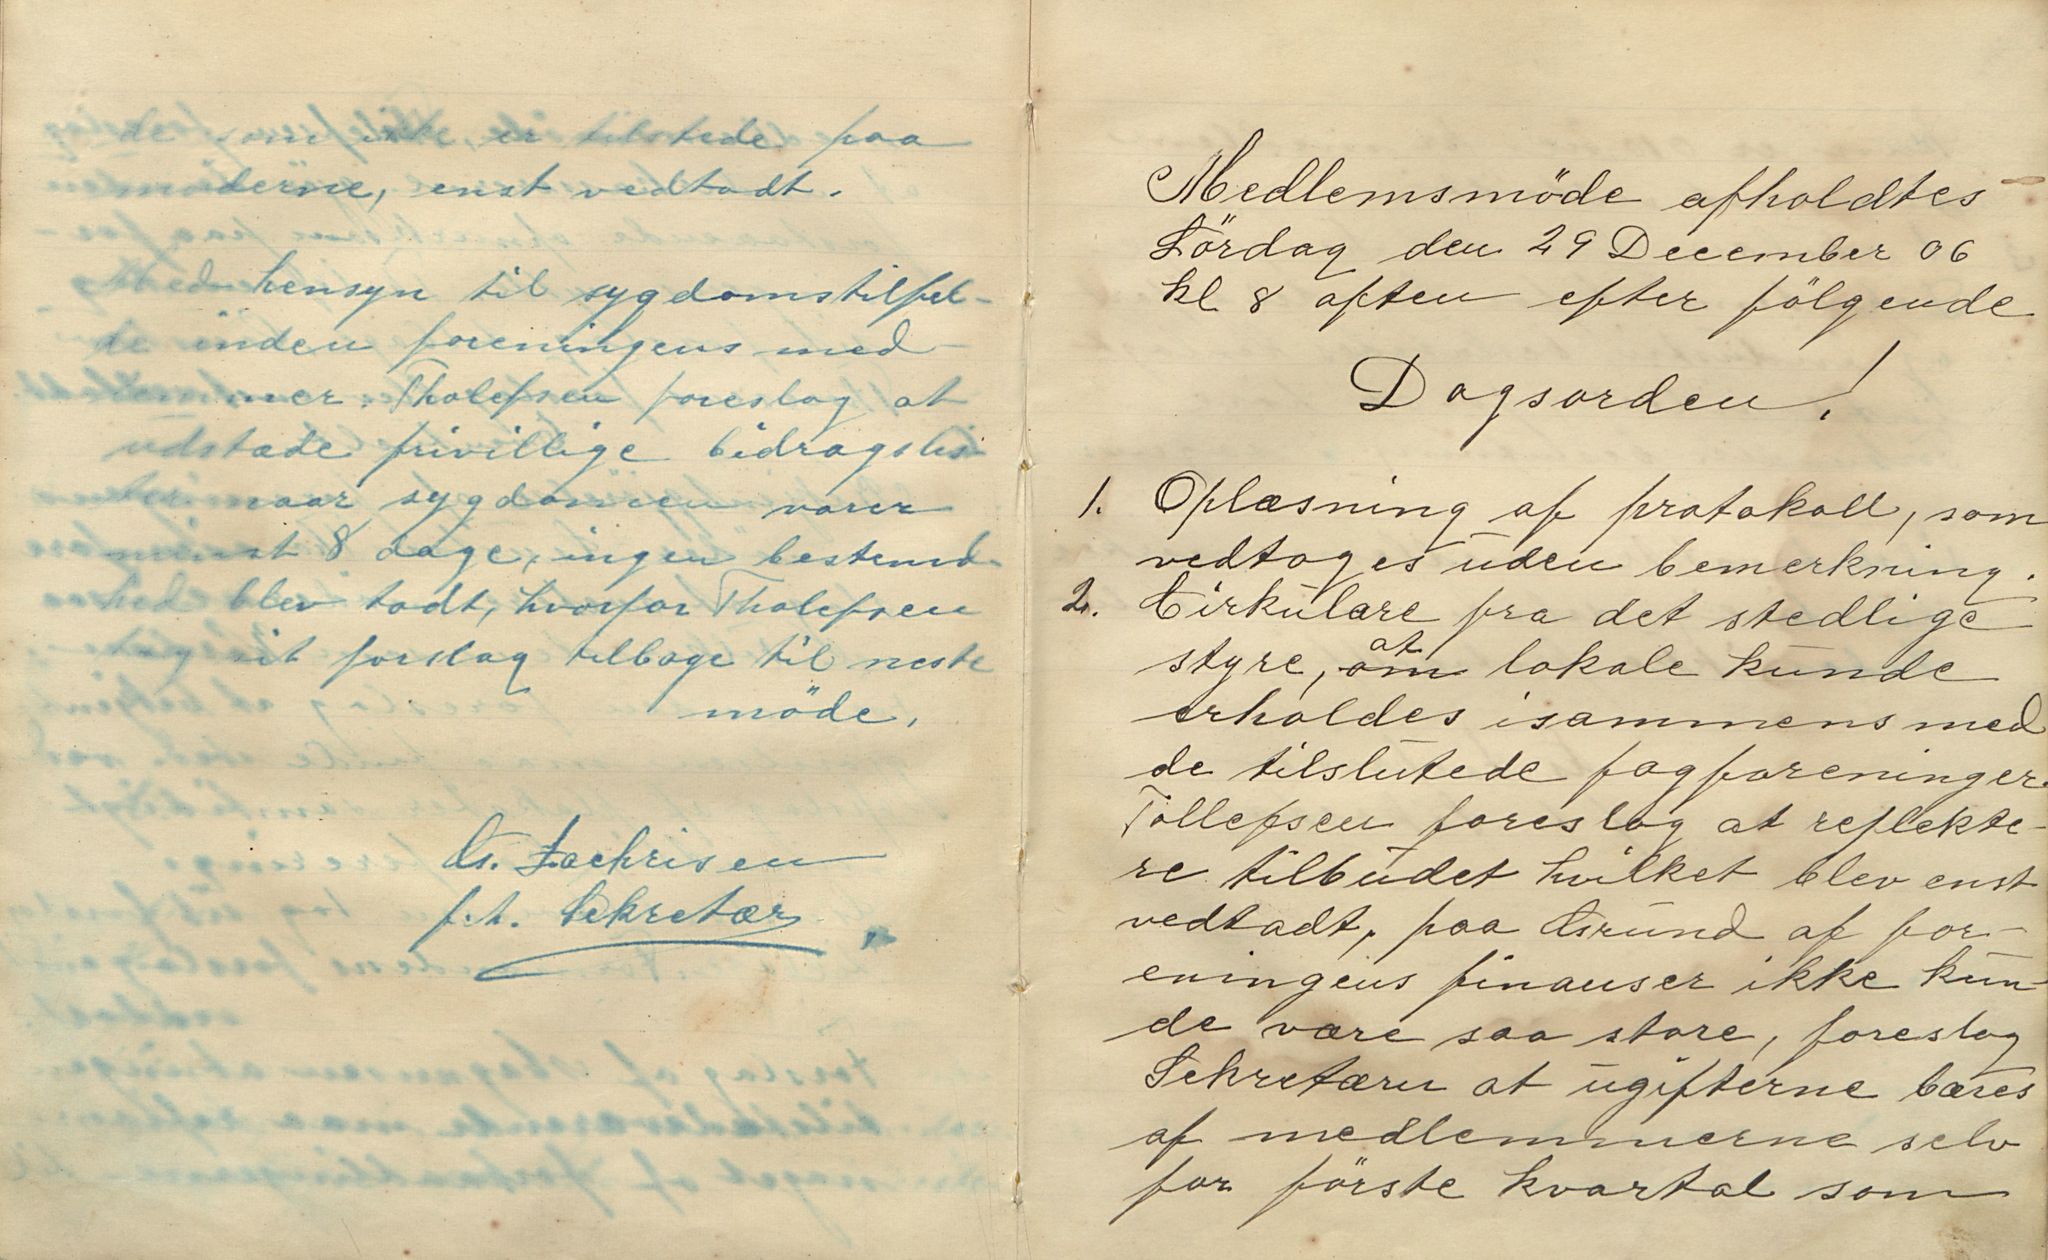 de som ikke er tilstede paa
möderne, enst vedtadt.
Med hensyn til sygdomstilfel-
de inden foreningens med-
lemmer. Tholefsen foreslog at
udstæde frivillige bidragslis-
ter naar sygdommen varer
minst 8 dage, ingen bestemd-
hed blev tadt, hvorfor Tholefsen
tog sit forslag tilbage til neste
möde.
G. Zachrisen
f.t. Sekretær
Medlemsmöde afholdtes
Lördag den 29 December 06
kl 8 aften efter fölgende
Dagsorden!
1. Oplæsning af protokoll, som
vedtoges uden bemerkning.
2. Cirkulære fra det stedlige
styre, om at lokale kunde
erholdes isammens med
de tilslutede fagforeninger.
Tollefsen foreslog at reflekte-
re tilbudet hvilket blev enst
vedtadt, paa Grund af for-
eningens finanser ikke kun-
de være saa store, foreslog
Sekretæren at ugifterne bæres
af medlemmerne selv
for förste kvartal som